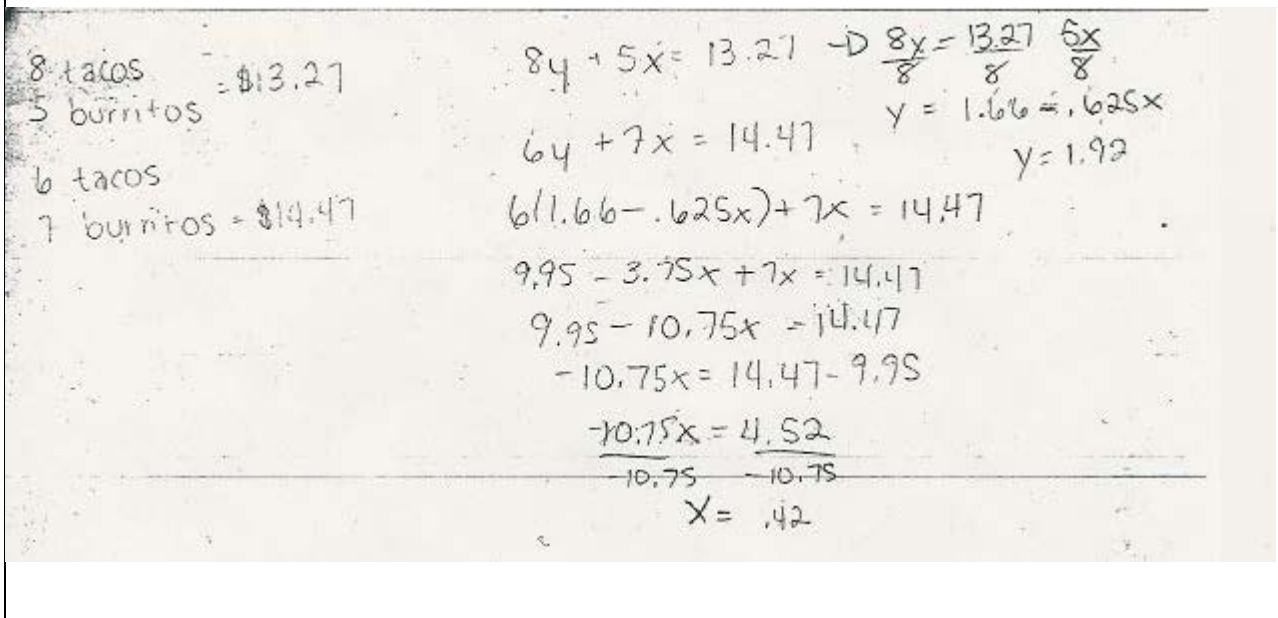 8 tacos
5 burritos
= $13.27
6 tacos
7 burritos = $14.47
8y + 5x = 13.27 → 8y/8 = 13.27/8 5x/8
y = 1.66 - .625x
y = 1.92
6y + 7x = 14.47
6(1.66 - .625x) + 7x = 14.47
9.95 - 3.75x + 7x = 14.47
9.95 - 10.75x = 14.47
-10.75x = 14.47 - 9.95
-10.75x = 4.52
-10.75 -10.75
x = .42